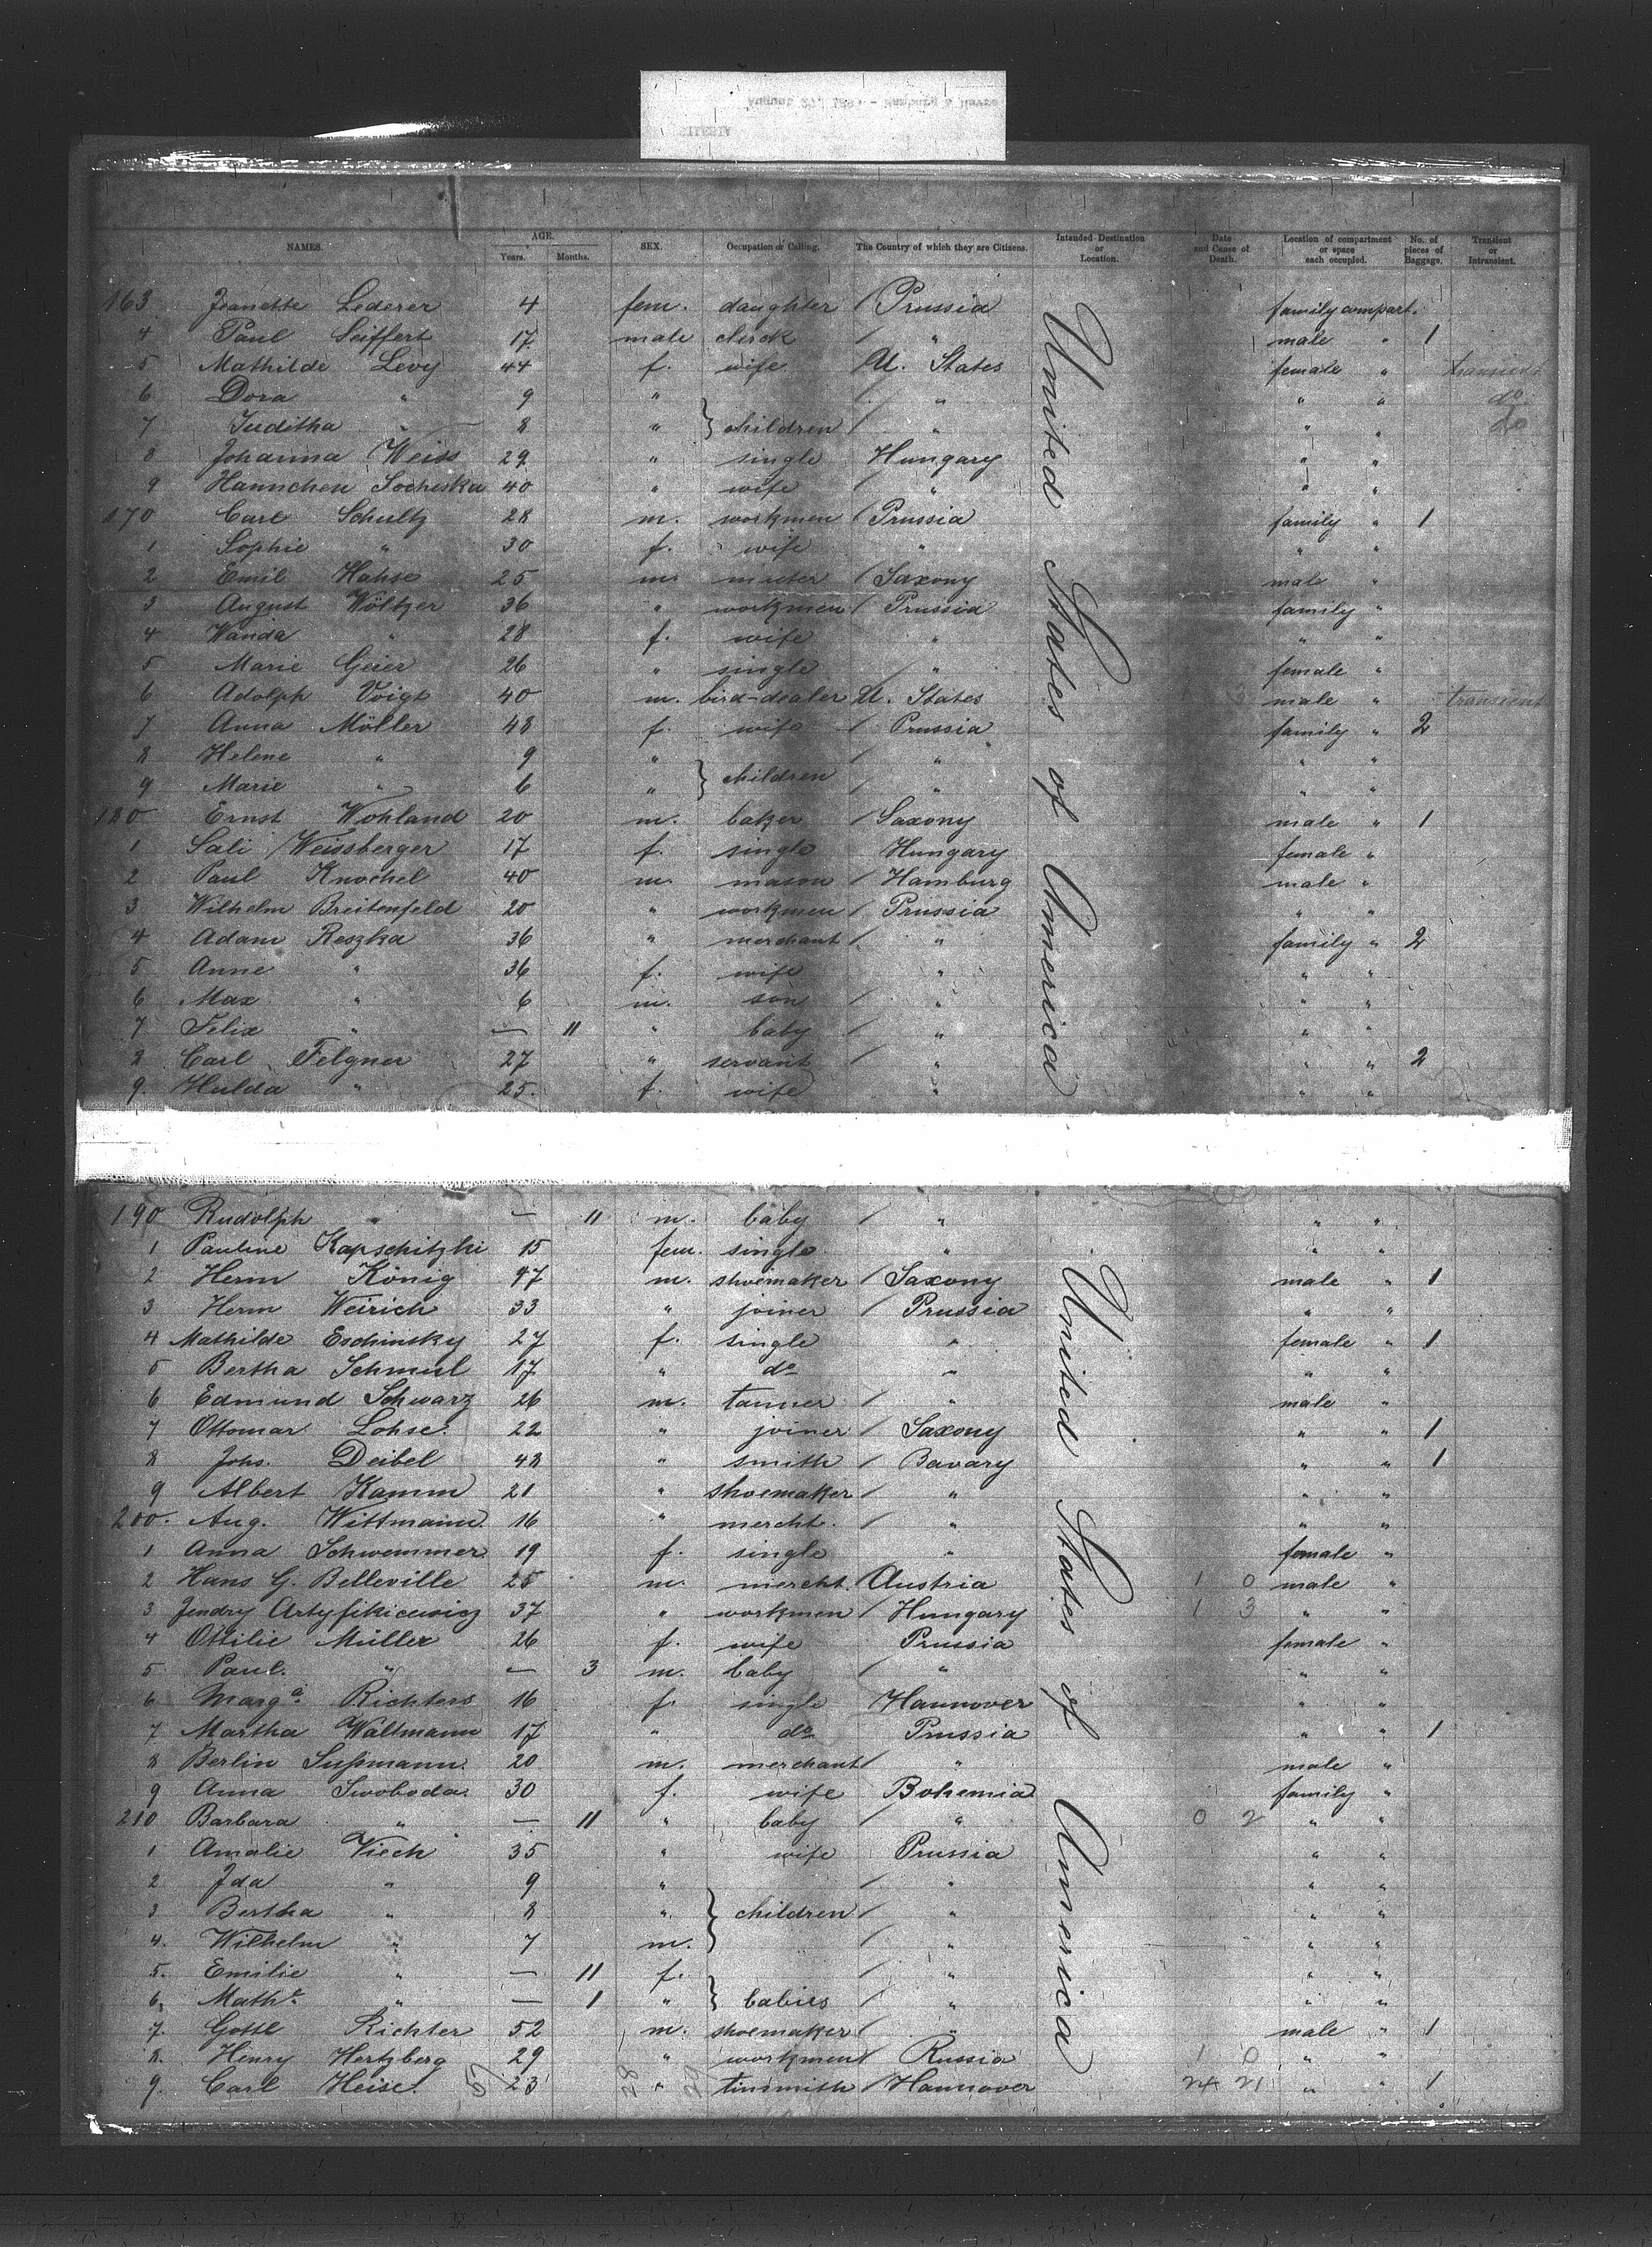 NAMES. AGE. Years. Months. SEX. Occupation or Calling. The Country of which they are Citizens. Intended Destination or Location. Date and Cause of Death. Location of compartment or space each occupied. No. of pieces of Baggage. Transient or Intransient.
163 Jeanette Lederer 4 fem. daughter / Prussia family compart.
4 Paul Seiffert 17 male clerck / " male " 1
5 Mathilde Levy 44 f. wife U. States female " transient
6 Dora " 9 " / " " " do
7 Juditha " 8 " } children / " " " do
8 Johanna Weiss 29 " single Hungary " "
9 Hannchen Socheska 40 " wife / " " "
170 Carl Schultz 28 m. workmen / Prussia family " 1
1 Sophie " 30 f. wife " " "
2 Emil Hahse 25 m. / Saxony male "
3 August Wöltzer 36 " workmen / Prussia family "
4 Wanda " 28 f. wife " " "
5 Marie Geier 26 " single " female "
6 Adolph Voigt 40 m. bird-dealer U. States male " transient
7 Anna Möller 48 f. wife / Prussia family " 2
8 Helene " 9 " / " " "
9 Marie " 6 " } children / " " "
180 Ernst Wohland 20 m. baker / Saxony male " 1
1 Sali Weissberger 17 f. single Hungary female "
2 Paul Knochel 40 m. mason / Hamburg male "
3 Wilhelm Breitenfeld 20 " workmen / Prussia " "
4 Adam Reszka 36 " merchant / " family " 2
5 Anne " 36 f. wife " " "
6 Max " 6 m. son / " " "
7 Felix " — 11 " baby / " " "
8 Carl Felgner 27 " servant / " " " 2
9. Hulda " 25. f. wife " " "
United States of America
190 Rudolph " — 11 m. baby / " " "
1 Pauline Kapschitzki 15 fem. single " " "
2 Herm König 47 m. shoemaker / Saxony male " 1
3 Herm Weirich 33 " joiner / Prussia " "
4 Mathilde Eschinsky 27 f. single " female " 1
5 Bertha Schmul 17 " do " " "
6 Edmund Schwarz 26 m. tanner / " male "
7 Ottomar Lohse. 22 " joiner / Saxony " " 1
8 Johs. Deibel 48 " smith / Bavary " " 1
9 Albert Kamm 21 " shoemaker / " " "
200. Aug. Wittmann. 16 " mercht. / " " "
1 Anna Schwemmer 19 f. single " female "
2 Hans G. Belleville 25 m. mercht. Austria 1 0 male "
3 Jendry Artyfikicewicz 37 " workmen / Hungary 1 3 " "
4 Ottilie Müller 26 f. wife Prussia female "
5 Paul. " — 3 m. baby / " " "
6 Marga. Richters 16 f. single Hannover " "
7 Martha Waltmann 17 " do Prussia " " 1
8 Berlin Sußmann. 20 m. merchant / " male "
9 Anna Swoboda. 30 f. wife Bohemia family "
210 Barbara " — 11 " baby / " 0 2 " "
1 Amalie Viech 35 " wife Prussia " "
2 Ida " 9 " / " " "
3 Bertha " 8 " } children / " " "
4. Wilhelm " 7 m. / " " "
5. Emilie " — 11 f. / " " "
6, Mathe " — 1 " } babies / " " "
7. Gottl Richter 52 m. shoemaker / " male " 1
8. Henry Hertzberg 29 " workmen / Russia 1 0 " "
9. Carl Heise. 23 " tinsmith / Hannover 24 21 " " 1
United States of America